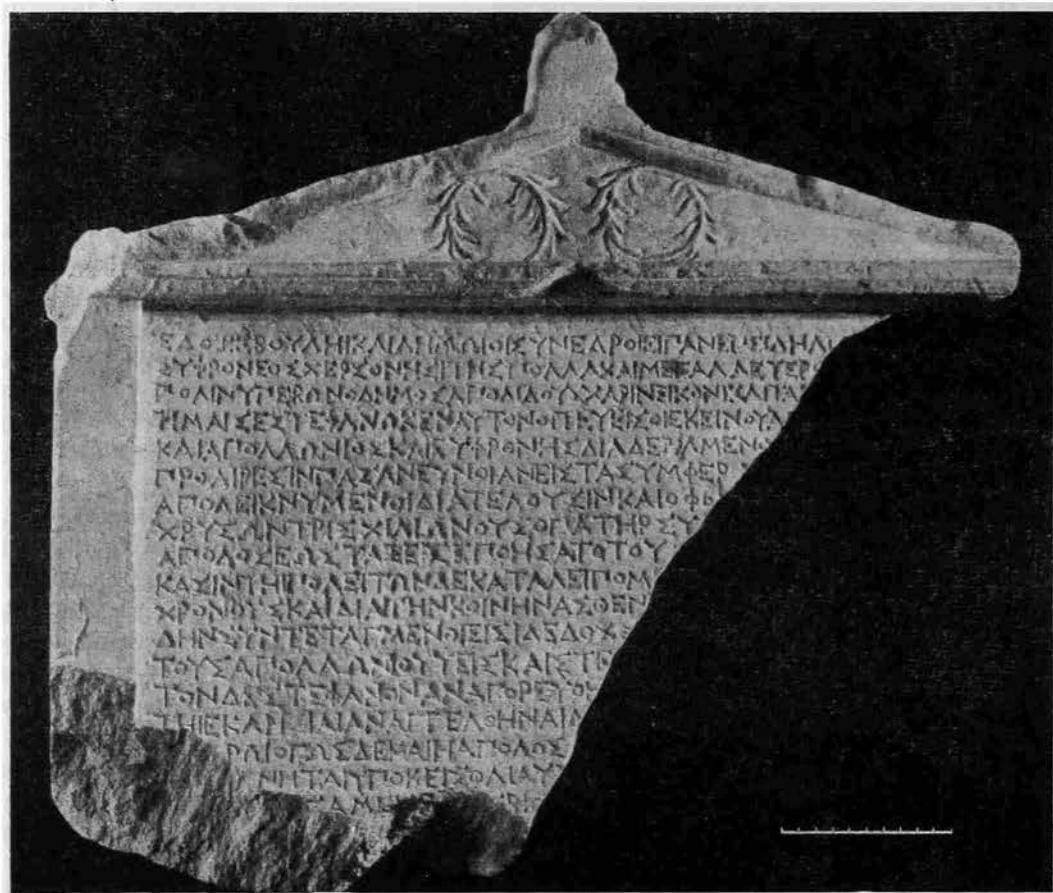 ΕΔΟΞΕΒΟΥΛΗΙΚΑΙΔΗΜΩΙΟΙΣΥΝΕΔΡΟΙΕΙΠΑΝΕΠΕΙΔΗΑ
ΕΥΦΡΟΝΟΣΧΕΡΣΟΝΗΣΙΤΗΣΠΟΛΛΑΚΑΙΜΕΓΑΛΑΕΥΕΡ
ΠΟΛΙΝΥΠΕΡΩΝΟΔΗΜΟΣΑΠΟΔΙΔΟΥΣΧΑΡΙΝΕΙΚΟΝΙΚΑΙΠΑ
ΤΙΜΑΙΣΕΣΤΕΦΑΝΩΚΕΝΑΥΤΟΝΟΙΤΕΥΕΙΣΟΙΕΚΕΙΝΟΥΑ
ΚΑΙΑΠΟΛΛΩΝΙΟΣΚΑΙΕΥΦΡΟΝ ΗΣΔΙΑΔΕΞΑΜΕΝΟ
ΠΡΟΑΙΡΕΣΙΝΠΑΣΑΝΕΥΝΟΙΑΝΕΙΣΤΑΣΥΜΦΕΡ
ΑΠΟΔΕΙΚΝΥΜΕΝΟΙΔΙΑΤΕΛΟΥΣΙΝΚΑΙΟΦ
ΧΡΥΣΩΝΤΡΙΣΧΙΛΙΩΝΟΥΣΟΠΑΤΗΡΣΥ
ΑΠΟΔΟΣΕΩΣΤΑΞΕΙΣΕΠΟΗΣΑΤΟΤΟΥ
ΚΑΣΙΝΤΗΙΠΟΛΕΙΤΩΝΔΕΚΑΤΑΛΕΙΠΟΜ
ΧΡΟΝΟΥΣΚΑΙΔΙΑΤΗΝΚΟΙΝΗΝΑΣΘΕΝ
ΔΗΝΣΥΝΤΕΤΑΓΜΕΝΟΙΕΙΣΙΔΕΔΟΧ
ΤΟΥΣΑΠΟΛΛΩΝΙΟΥΥΕΙΣΚΑΙΣΤ
ΤΟΝΔΕΣΤΕΦΑΝΟΝΑΝΑΓΟΡΕΥΘ
ΤΗΙΕΚΚΛΗΣΙΑΙΑΝΑΓΓΕΛΘΗΝΑΙ
ΟΠΩΣΔΕΚΑΙΗΑΠΟΔΟΣ